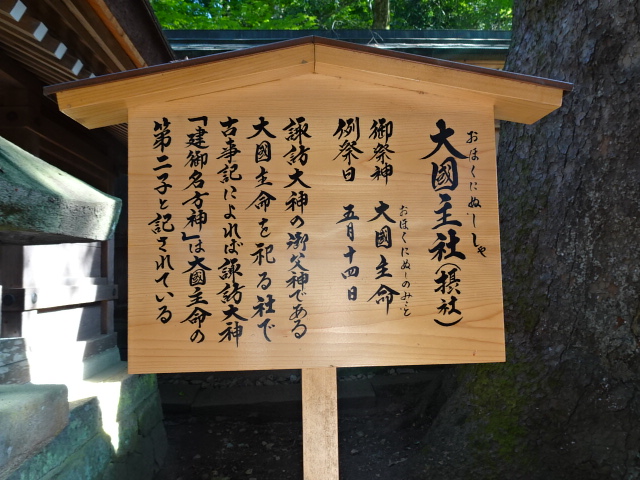 おほくにぬししゃ
大國主社(摂社)
御祭神 大國主命
おほくにぬしのみこと
例祭日 五月十四日
諏訪大神の御父神である
大國主命を祀る社で
古事記によれば諏訪大神
「建御名方神」は大國主命の
第二子と記されている